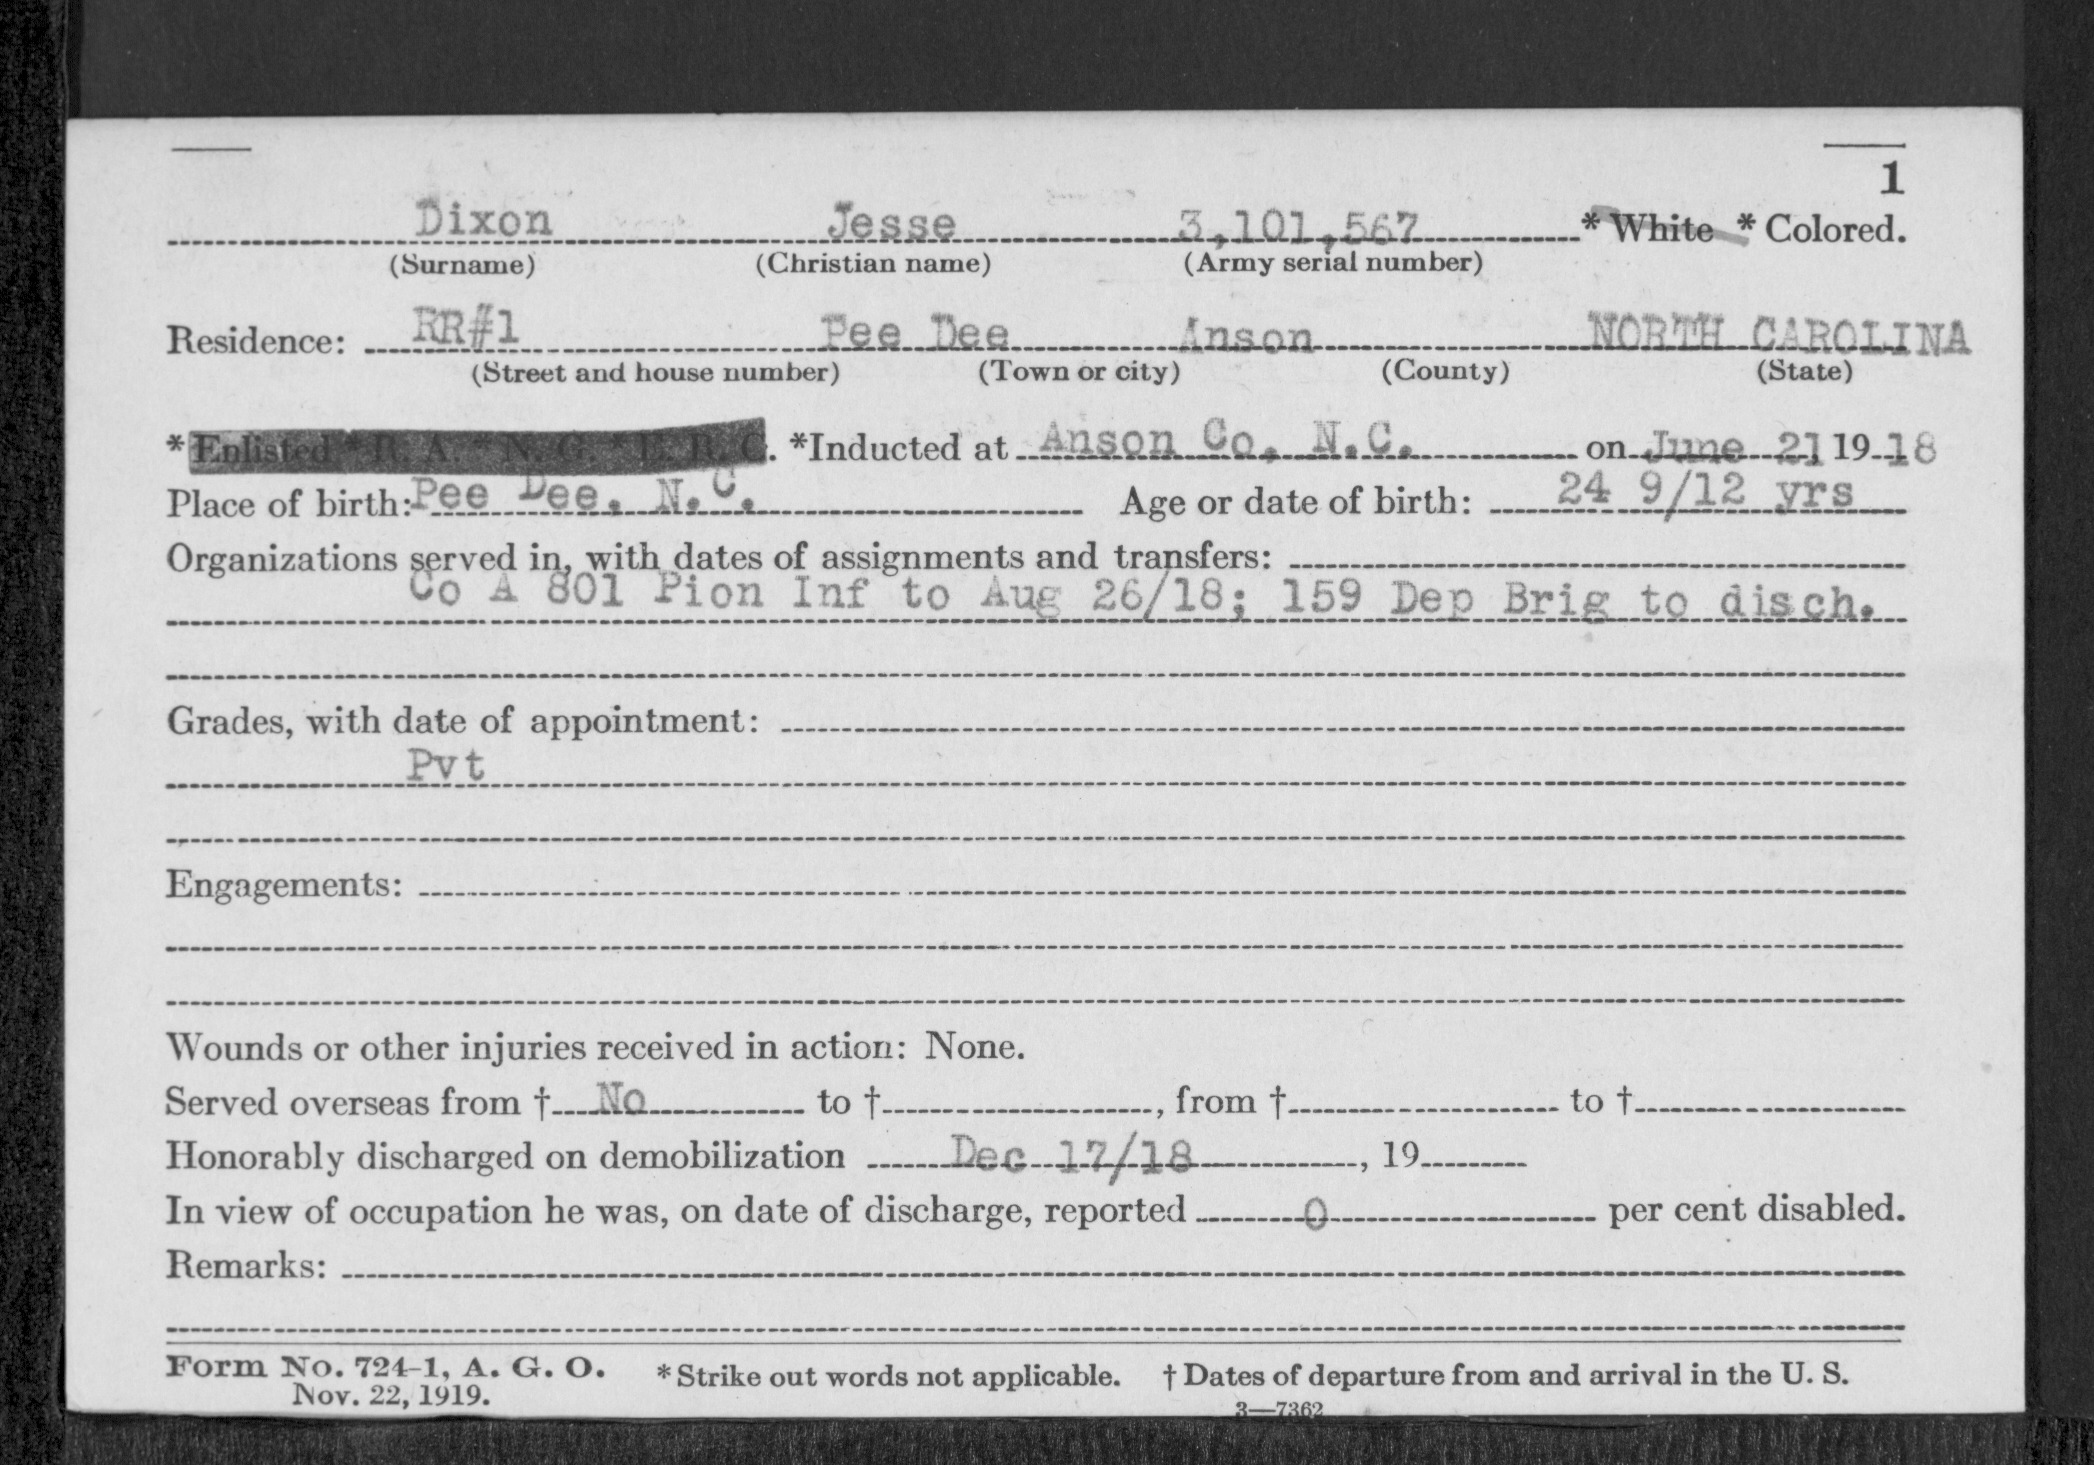 1
Dixon Jesse 3,101,567 * White * Colored.
(Surname) (Christian name) (Army serial number)
Residence: RR#1 Pee Dee Anson NORTH CAROLINA
(Street and house number) (Town or city) (County) (State)
* Enlisted * R. A. * N. G. * E. R. C. *Inducted at Anson Co, N.C. on June 21 19 18
Place of birth: Pee Dee, N.C. Age or date of birth: 24 9/12 yrs
Organizations served in, with dates of assignments and transfers:
Co A 801 Pion Inf to Aug 26/18; 159 Dep Brig to disch.
Grades, with date of appointment:
Pvt
Engagements:
Wounds or other injuries received in action: None.
Served overseas from † No to †, from † to †
Honorably discharged on demobilization Dec 17/18, 19
In view of occupation he was, on date of discharge, reported 0 per cent disabled.
Remarks:
Form No. 724-1, A. G. O. * Strike out words not applicable. † Dates of departure from and arrival in the U. S.
Nov. 22, 1919.
3—7362